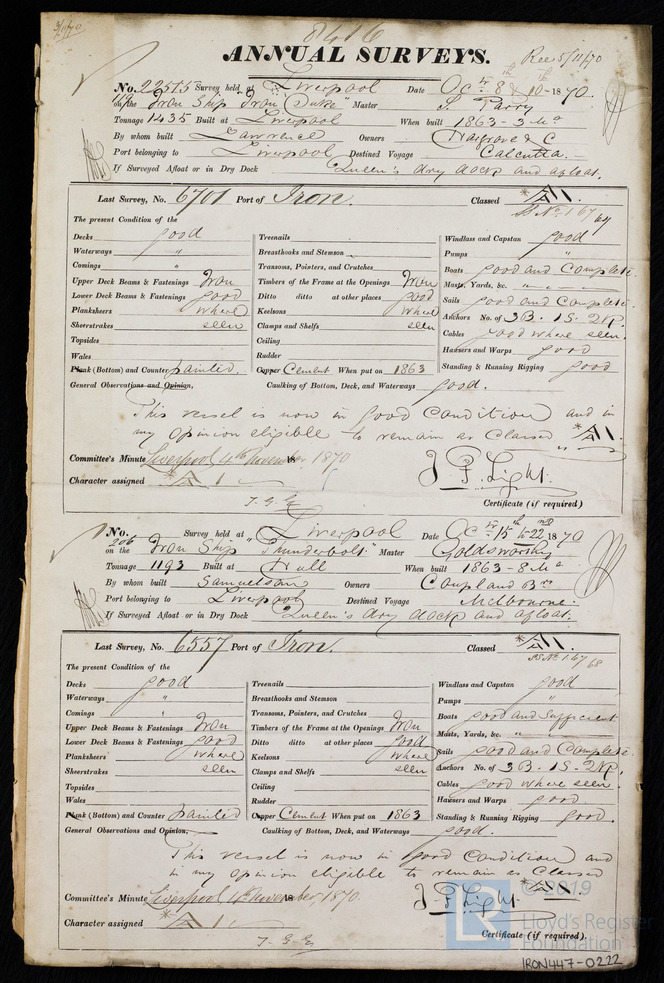 8416
ANNUAL SURVEYS.
Rec 5/11/70
No. 22515 Survey held at Liverpool Date Octr 8th & 10th 1870.
on the Iron Ship "Iron Duke" Master Parry
Tonnage 1435 Built at Liverpool When built 1863-3 Mo
By whom built Lawrence Owners Hargrove & C
Port belonging to Liverpool Destined Voyage Calcutta.
If Surveyed Afloat or in Dry Dock Queen's dry dock and afloat.
Last Survey, No. 6701 Port of Iron. Classed *A1.
The present Condition of the
Decks good Treenails Windlass and Capstan good
Waterways " Breasthooks and Stemson Pumps "
Comings " Transoms, Pointers, and Crutches Boats good and Complete.
Upper Deck Beams & Fastenings Iron Timbers of the Frame at the Openings Iron Masts, Yards, &c. " " "
Lower Deck Beams & Fastenings good Ditto ditto at other places good Sails good and Complete.
Planksheers where Keelsons where Anchors No. of 3B. 1S. 2K.
Sheerstrakes seen Clamps and Shelfs seen Cables good where seen.
Topsides Ceiling Hawsers and Warps good
Wales Rudder Standing & Running Rigging good
Plank (Bottom) and Counter painted. Copper Cement When put on 1863
General Observations and Opinion, Caulking of Bottom, Deck, and Waterways good.
This vessel is now in good Condition and in
my Opinion eligible to remain as Classed *A1.
Committee's Minute Liverpool 4th November 1870
Character assigned *A1
J. F. Light.
Certificate (if required)
No. Survey held at Liverpool Date Octr 15th & 22nd 1870
on the Iron Ship "Thunderbolt" Master Goldsworthy
Tonnage 1193 Built at Hull When built 1863-8 Mo
By whom built Samuelson Owners Coupland Brs
Port belonging to Liverpool Destined Voyage Melbourne.
If Surveyed Afloat or in Dry Dock Queen's dry dock and afloat.
Last Survey, No. 6557 Port of Iron. Classed *A1.
The present Condition of the
Decks good Treenails Windlass and Capstan good
Waterways " Breasthooks and Stemson Pumps "
Comings " Transoms, Pointers, and Crutches Boats good and Sufficient
Upper Deck Beams & Fastenings Iron Timbers of the Frame at the Openings Iron Masts, Yards, &c. "
Lower Deck Beams & Fastenings good Ditto ditto at other places good Sails good and Complete
Planksheers where Keelsons where Anchors No. of 3B. 1S. 2K.
Sheerstrakes seen Clamps and Shelfs seen Cables good where seen.
Topsides Ceiling Hawsers and Warps good
Wales Rudder Standing & Running Rigging good.
Plank (Bottom) and Counter painted Copper Cement When put on 1863
General Observations and Opinion, Caulking of Bottom, Deck, and Waterways good.
This vessel is now in good Condition and
in my Opinion eligible to remain as Classed
*A1.
Committee's Minute Liverpool 4th November, 1870.
J. F. Light.
Character assigned *A1
Certificate (if required).
©2019
LR
Lloyd's Register
Foundation
IRON447-0222